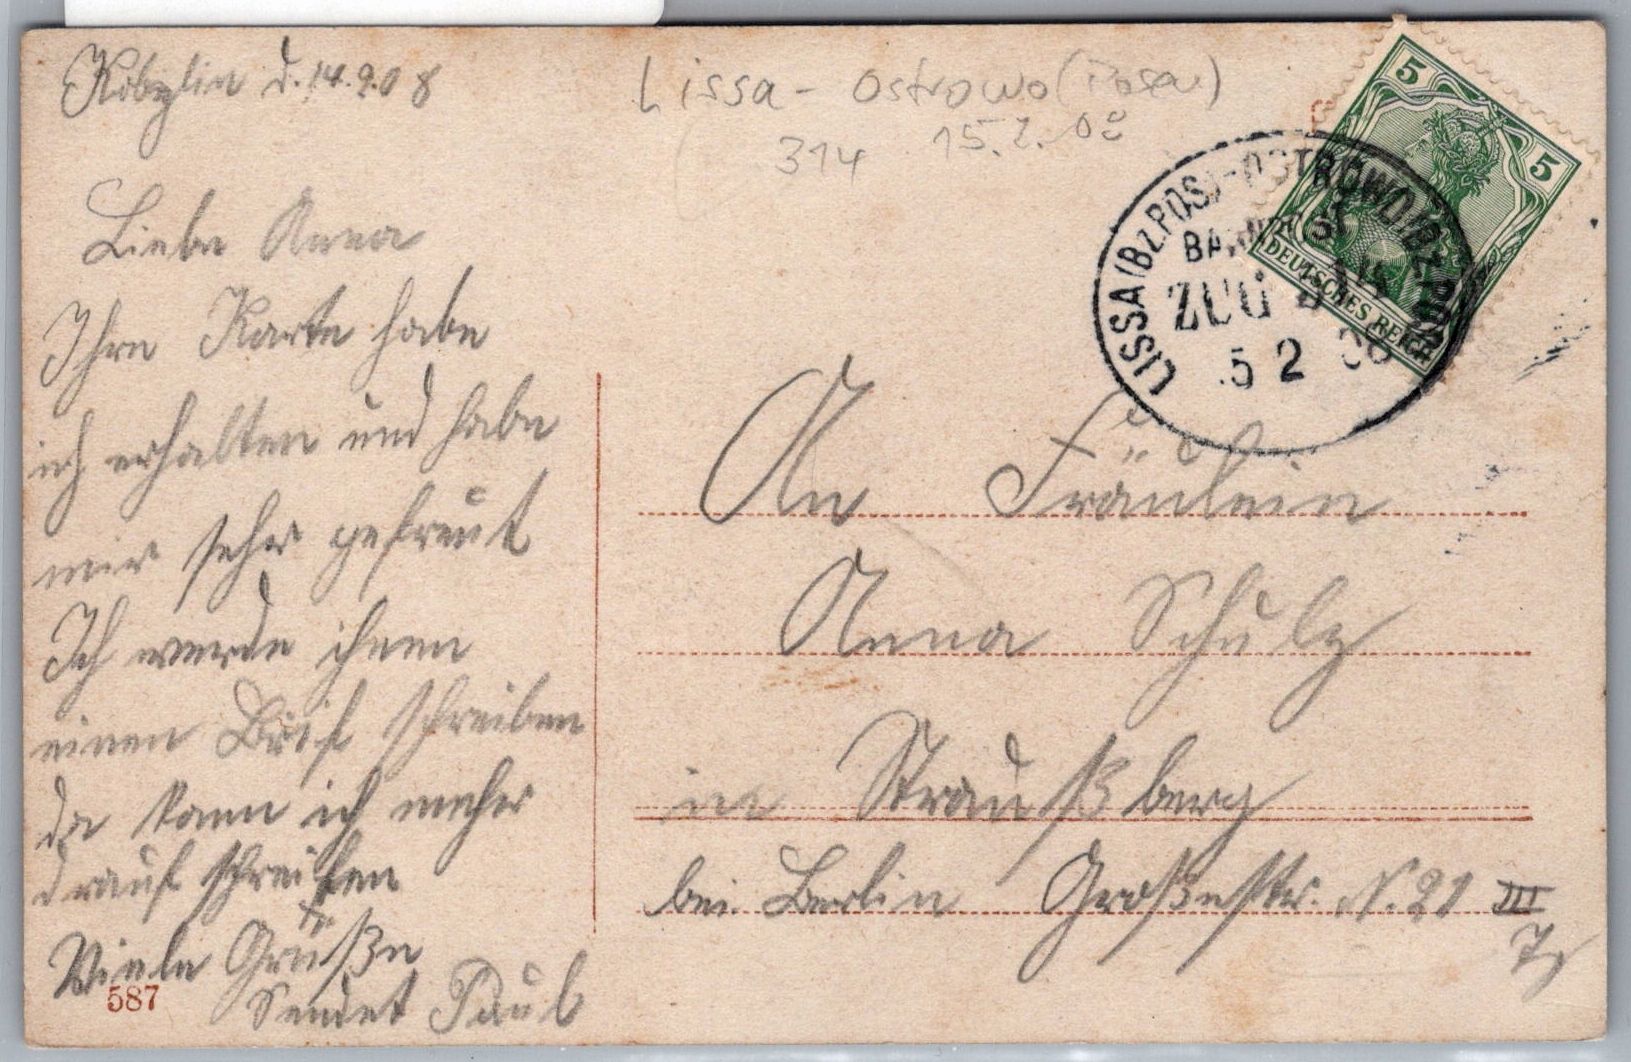 Kobylin d. 14.2.08
Liebe Anna
Ihre Karte habe
ich erhalten und habe
mir sehr gefreut
Ich werde ihnen
einen Brif schreiben
da kann ich meher
drauf schreiben
Viele Grüße
Sendet Paul
587
Lissa - Ostrowo (Posen)
314 15.2.08
5
5
DEUTSCHES REICH
LISSA (BZ.POS.) - OSTROWO (BZ.POS.)
BAHNPOST
ZUG
5 2 08
An Fräulein
Anna Schulz
in Straußberg
bei Berlin Großestr. N. 21 III